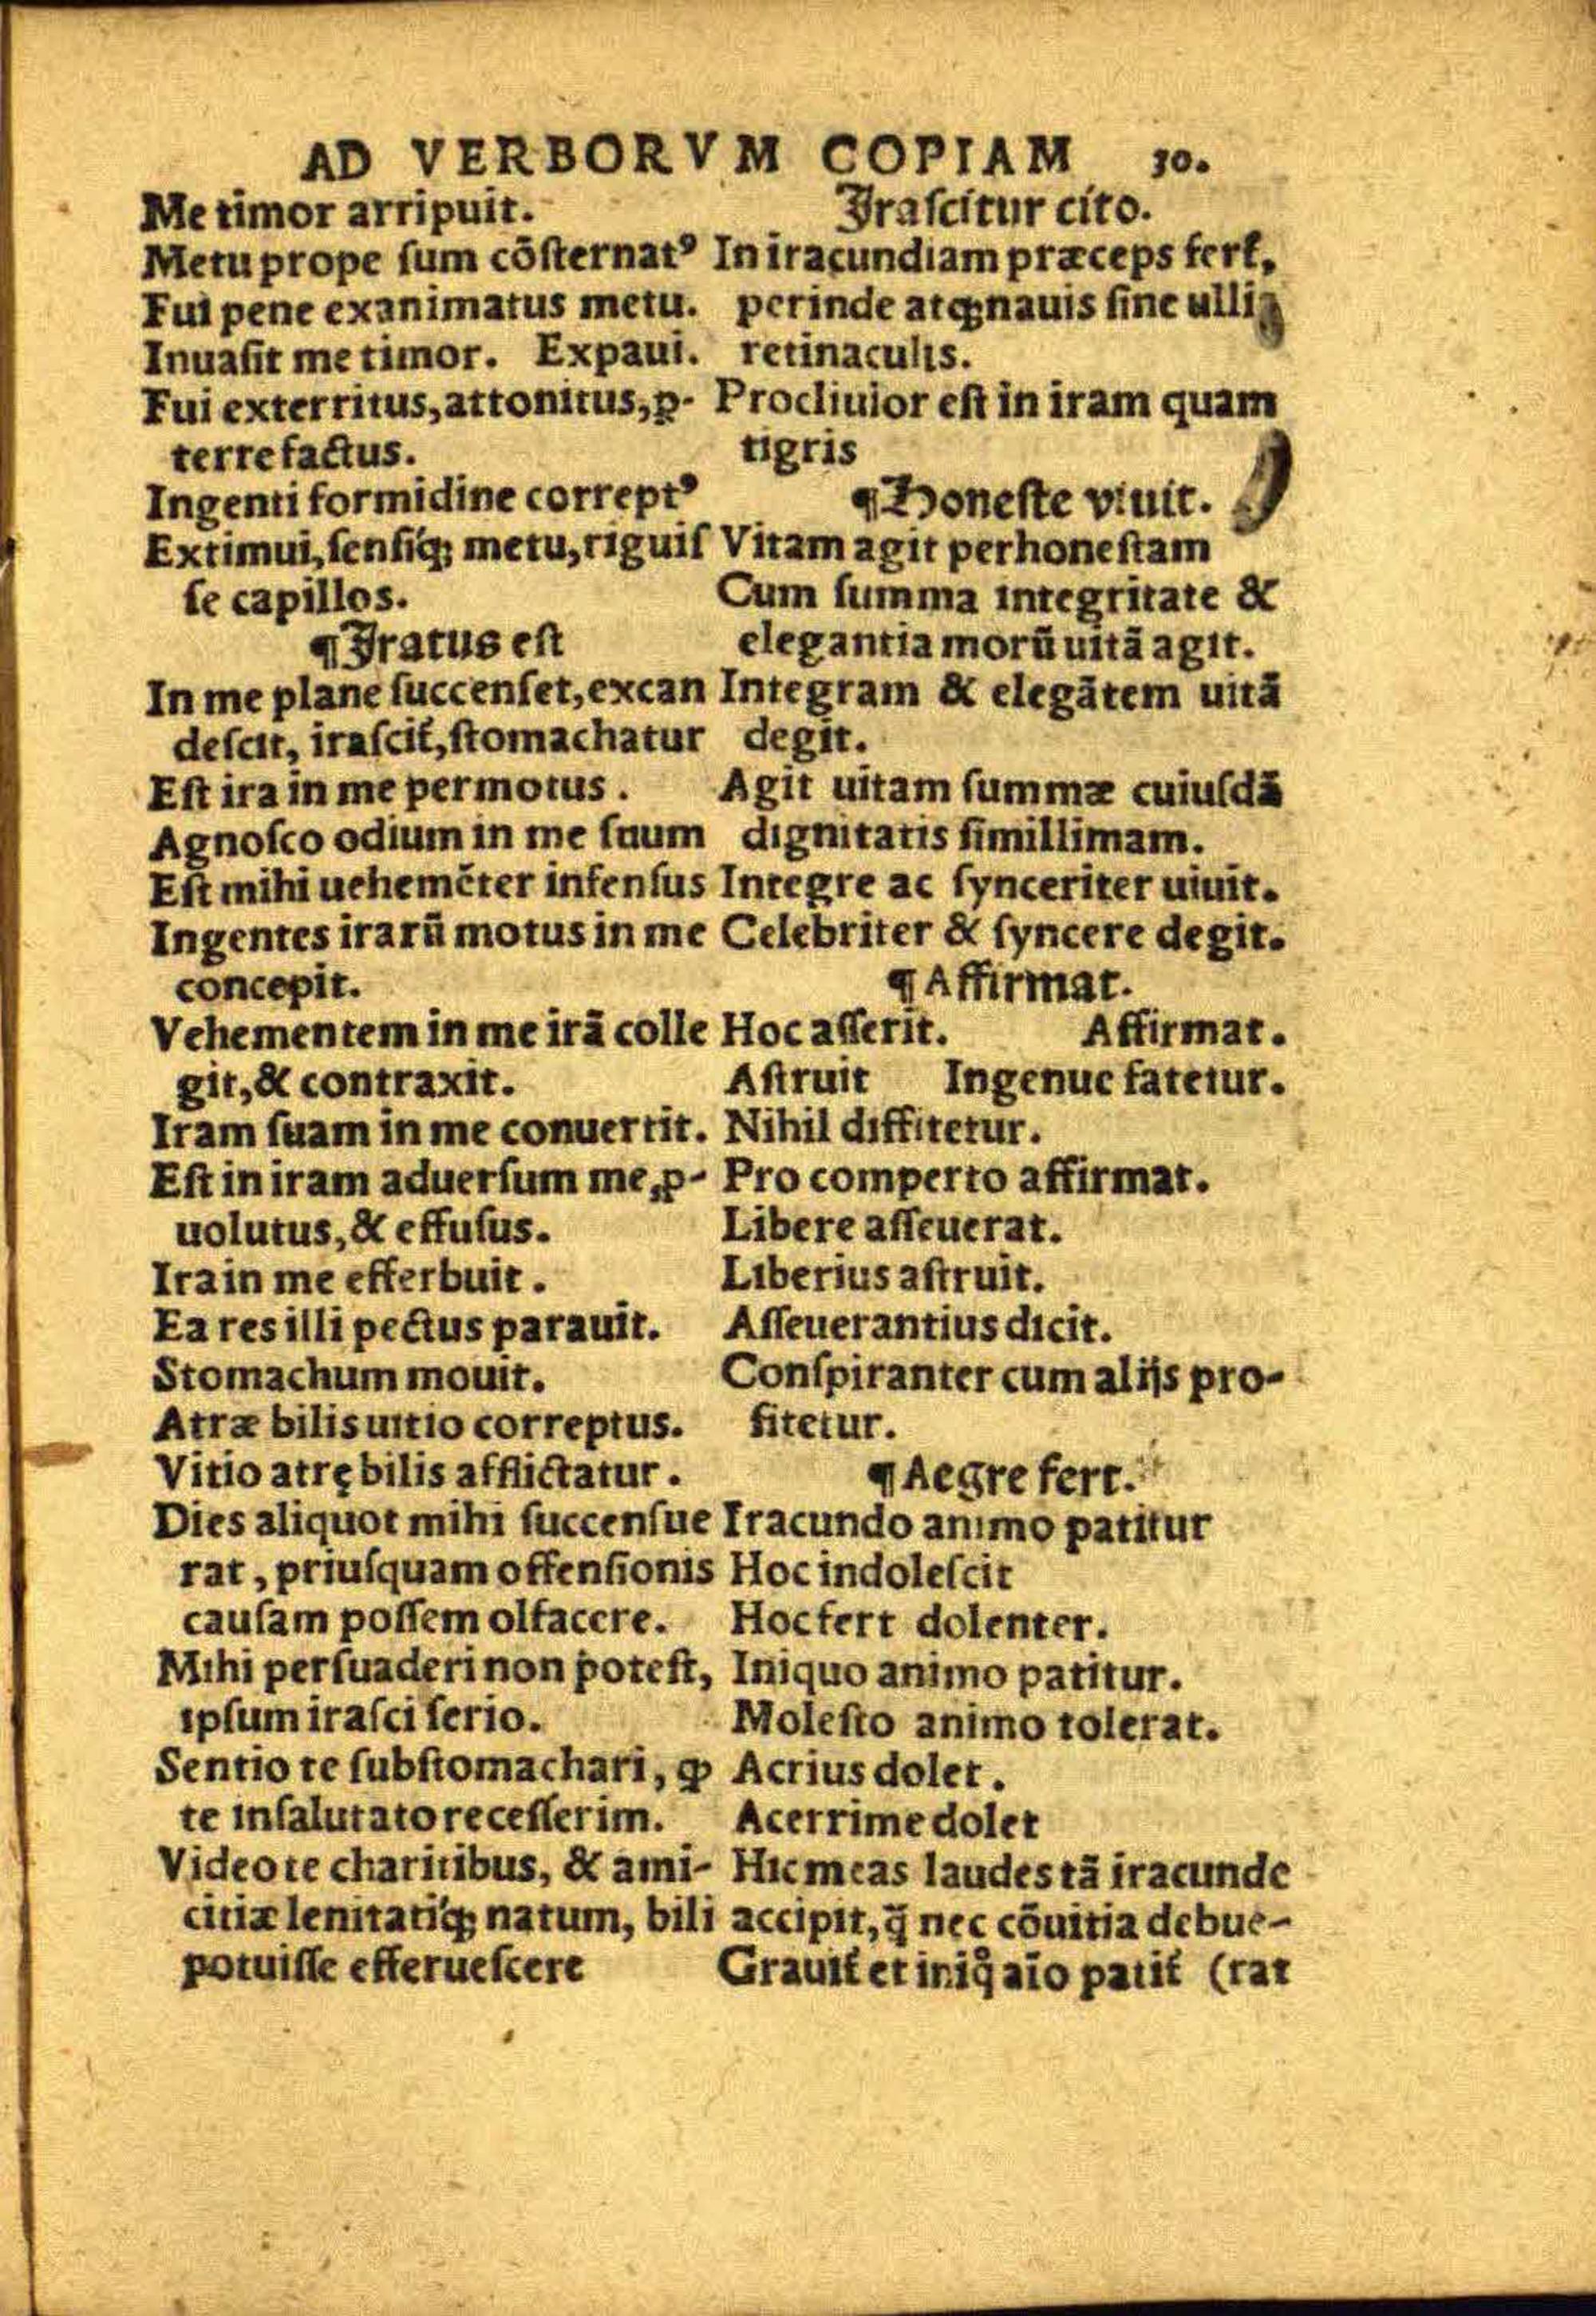 AD VERBORVM COPIAM 30.
Me timor arripuit.
Metu prope ſum cõſternatꝰ
Fui pene exanimatus metu.
Inuaſit me timor. Expaui.
Fui exterritus, attonitus, ꝑ-
terrefactus.
Ingenti formidine correptꝰ
Extimui, ſenſiq́ꝫ metu, riguiſ
ſe capillos.
¶Iratus eſt
In me plane ſuccenſet, excan
deſcit, iraſcit᷑, ſtomachatur
Eſt ira in me permotus.
Agnoſco odium in me ſuum
Eſt mihi uehemẽter infenſus
Ingentes irarũ motus in me
concepit.
Vehementem in me irã colle
git, & contraxit.
Iram ſuam in me conuertit.
Eſt in iram aduerſum me, ꝓ-
uolutus, & effuſus.
Ira in me efferbuit.
Ea res illi pectus parauit.
Stomachum mouit.
Atræ bilis uitio correptus.
Vitio atrę bilis afflictatur.
Dies aliquot mihi ſuccenſue
rat, priuſquam offenſionis
cauſam poſſem olfacere.
Mihi perſuaderi non poteſt,
ipſum iraſci ſerio.
Sentio te ſubſtomachari, ꝙ
te inſalutato receſſerim.
Video te charitibus, & ami-
citiæ lenitatiq́ꝫ natum, bili
potuiſſe efferueſcere
Iraſcitur cito.
In iracundiam præceps fert᷑,
perinde atqꝫ nauis ſine ullis
retinaculis.
Procliuior eſt in iram quam
tigris
¶Honeſte viuit.
Vitam agit perhoneſtam
Cum ſumma integritate &
elegantia morũ uitã agit.
Integram & elegãtem uitã
degit.
Agit uitam ſummæ cuiuſdã
dignitatis ſimillimam.
Integre ac ſynceriter uiuit.
Celebriter & ſyncere degit.
¶Affirmat.
Hoc aſſerit. Affirmat.
Aſtruit Ingenue fatetur.
Nihil diffitetur.
Pro comperto affirmat.
Libere aſſeuerat.
Liberius aſtruit.
Aſſeuerantius dicit.
Conſpiranter cum alijs pro-
fitetur.
¶Aegre fert.
Iracundo animo patitur
Hoc indoleſcit
Hoc fert dolenter.
Iniquo animo patitur.
Moleſto animo tolerat.
Acrius dolet.
Acerrime dolet
Hic meas laudes tã iracunde
accipit, q̃ nec cõuitia debue-
Grauit᷑ et iniqͦ aĩo patit᷑ (rat